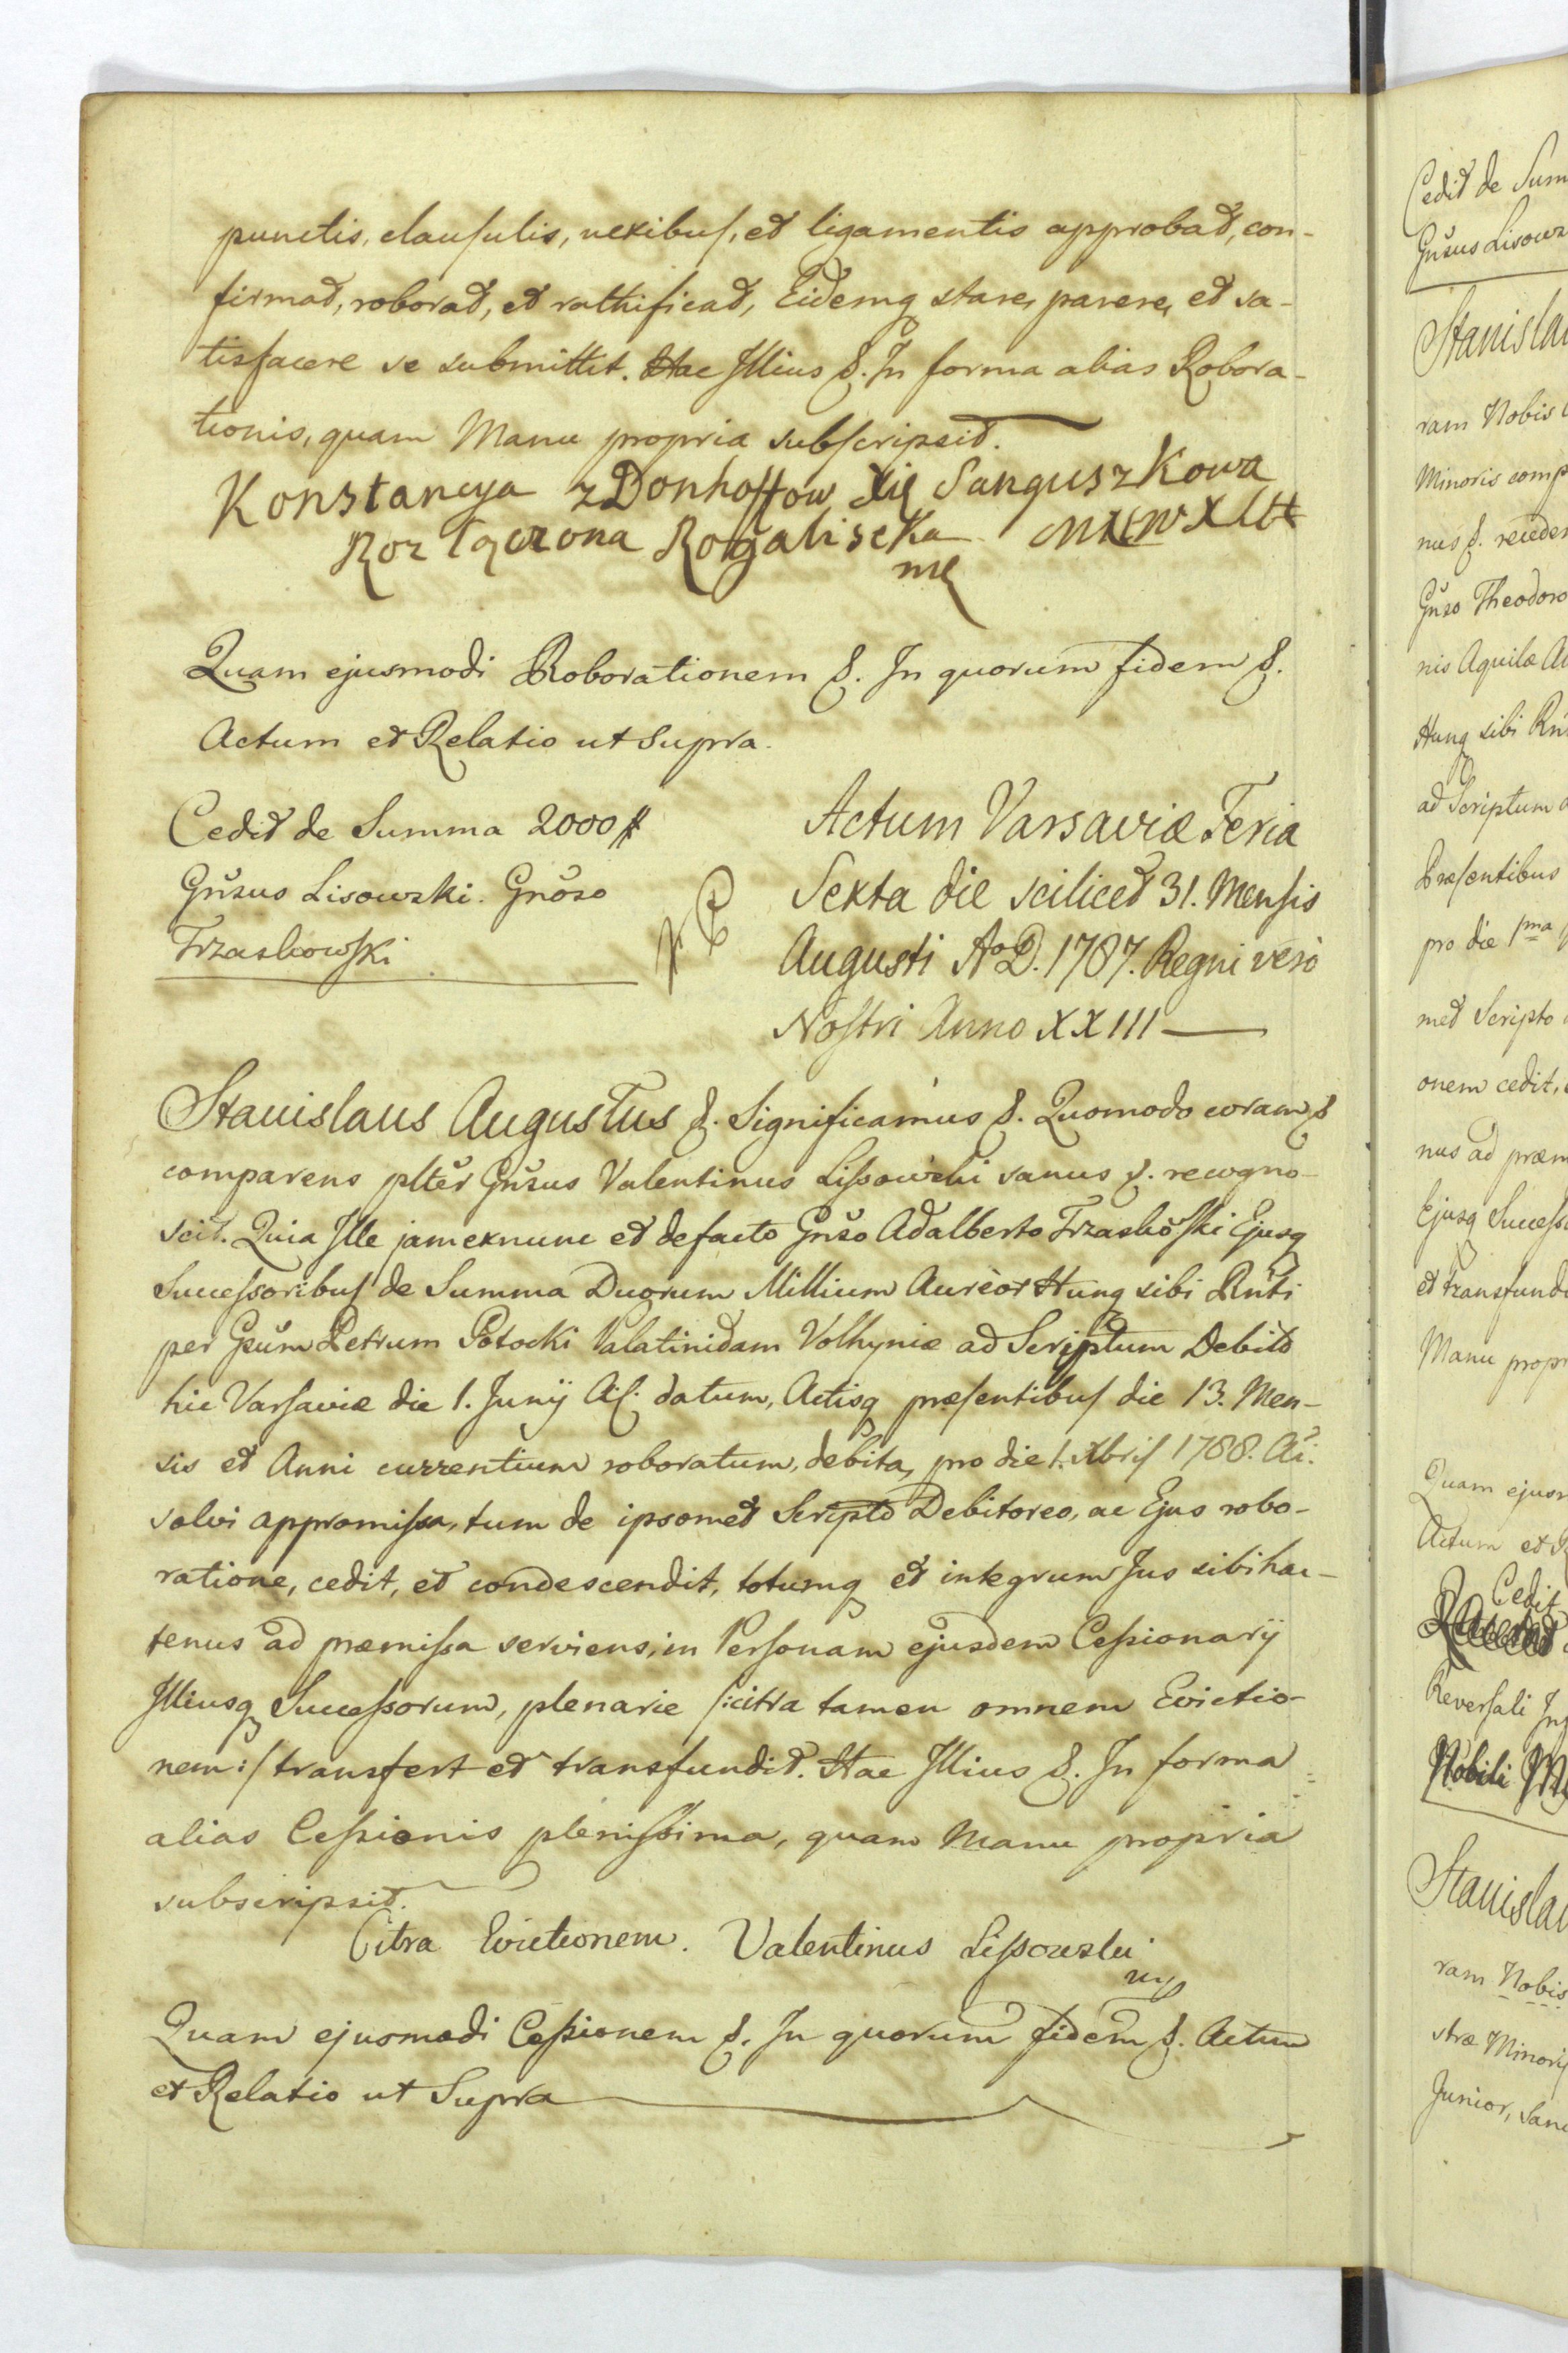 punctis, clausulis, nexibus, et ligamentis approbat, con-
firmat, roborat, et rathificat, Eidemq stare, parere, et sa-
tisfacere se submittit. Hac Illius &. In forma alias Robora-
tionis, quam Manu propria subscripsit.
Konstancya z Donhoffow Xię Sanguszkowa
Rozłączona Rogaliscka
mę
Quam ejusmodi Roborationem &. In quorum fidem &.
Actum et Relatio ut Supra.
Cedit de Summa 2000 #
Gnsus Lisowski. Gnoso
Trzaskowski
Actum Varsaviæ Feria
Sexta die scilicet 31. Mensis
Augusti AoD. 1787. Regni vero
Nostri Anno XXIII
Stanislaus Augustus &. Significamus &. Quomodo coram &
comparens plter Gnsus Valentinus Lissowski sanus &. recogno-
scit. Quia Ille jam exnunc et defacto Gnso Adalberto Trzaskoski Ejusq
Successoribus de Summa Duorum Millium Aureor Hung sibi Rnti
per Gsum Petrum Potocki Palatinidam Volhyniæ ad Scriptum Debito
hic Varsaviæ die 1. Junij Ai. datum, Actisq præsentibus die 13. Men-
sis et Anni currentium roboratum, debita, pro die 1. Xbris 1788. Ai.
solvi appromissa, tum de ipsomet Scripto Debitoreo, ac Ejus robo-
ratione, cedit, et condescendit, totumq et integrum Jus sibi hac-
tenus ad præmissa serviens, in Personam ejusdem Cessionarij
Illiusq Successorum, plenarie /:citra tamen omnem Evictio-
nem:/ transfert et transfundit. Hac Illius &. In forma
alias Cessionis plenissima, quam Manu propria
subscripsit.
Citra Evictionem. Valentinus Lissowski
mp
Quam ejusmodi Cessionem &. In quorum fidem &. Actum
et Relatio ut Supra
Cedit de Sum
Gnsus Lisows
Stanislau
ram Nobis
Minoris comp
nus &. reciden
Gnso Theodoro
nis Aquilæ
Hung sibi Rn
ad Scriptum
Præsentibus
pro die 1ma
met Scripto
onem cedit,
nus ad præm
Ejusq Success
et transfund
Manu propr
Quam ejusm
Actum et R
Cedit
Reversali
Nobili
Stanislau
ram Nobis
stræ Minoris
Junior, San